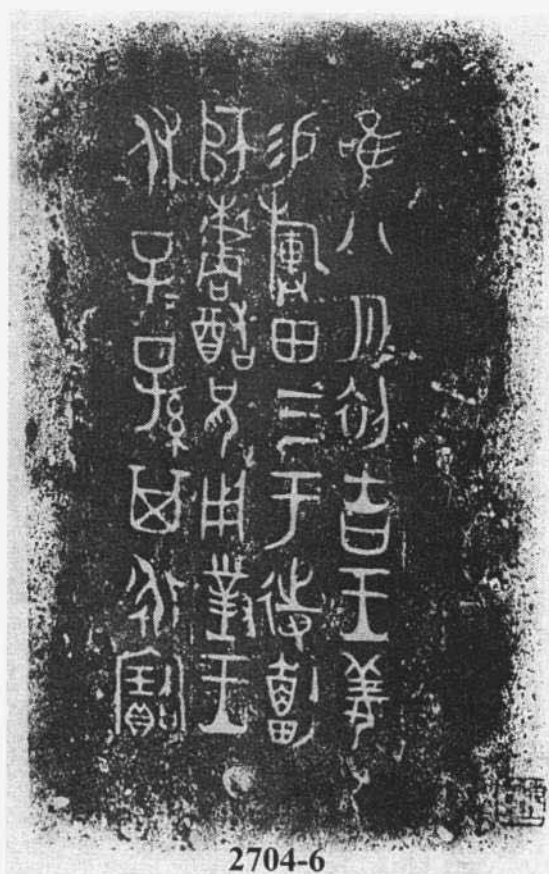 唯八月初吉王姜
易旟田三于待劃
師櫨酷兄用對王
休子=孫其永寶
2704-6